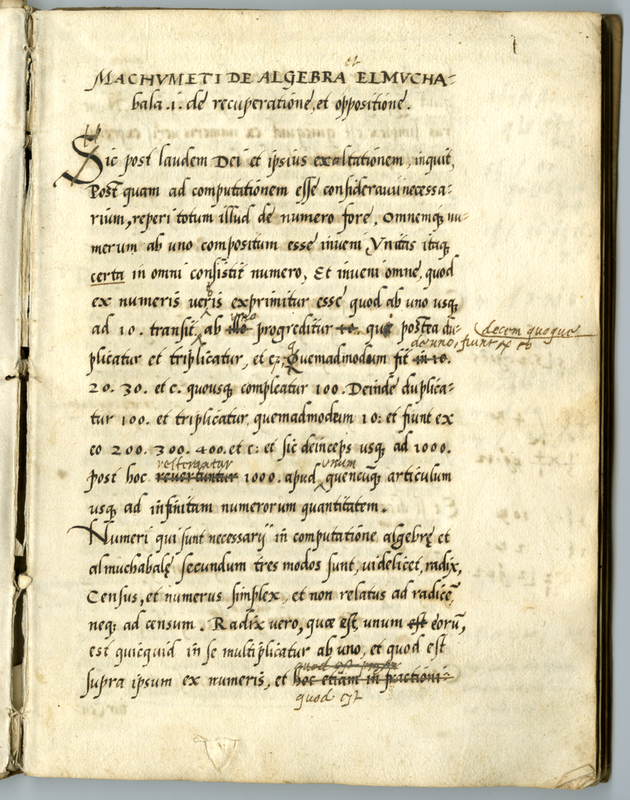 1
et
MACHVMETI DE ALGEBRA ELMVCHA-
bala .i. de recuperatione, et oppositione.
Sic post laudem Dei et ipsius exaltationem, inquit,
Post quam ad computationem esse consideraui necessa-
rium, reperi totum illud de numero fore. Omnemq; nu-
merum ab uno compositum esse inveni Vnitas itaq;
certa in omni consistit numero, Et inveni omne, quod
ex numeris veris exprimitur esse quod ab uno usq;
ad 10. transit, ab illo progreditur 10. quę postea du-
decem quoque
de uno, fiunt ex
plicatur et triplicatur, et c; Quemadmodum fit in 10.
20. 30. et c. quousq; compleatur 100. Deinde duplica-
tur 100. et triplicatur, quemadmodum 10: et fiunt ex
eo 200. 300. 400. et c: et sic deinceps usq; ad 1000.
unum
post hoc revertuntur 1000. apud quencuq; articulum
usq; ad infinitam numerorum quantitatem.
Numeri qui sunt necessarij in computatione algebrę et
almuchabalę secundum tres modos sunt, videlicet, radix,
Census, et numerus simplex, et non relatus ad radicē,
neq; ad censum. Radix vero, quæ est unum est eorū,
est quicquid in se multiplicatur ab uno, et quod est
supra ipsum ex numeris, et hoc etiam in fractioni-
quod est